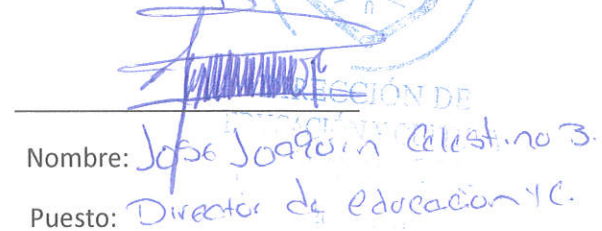 DIRECCIÓN DE
EDUCACIÓN Y
Nombre: Jose Joaquin Celestino B.
Puesto: Director de educacion y C.